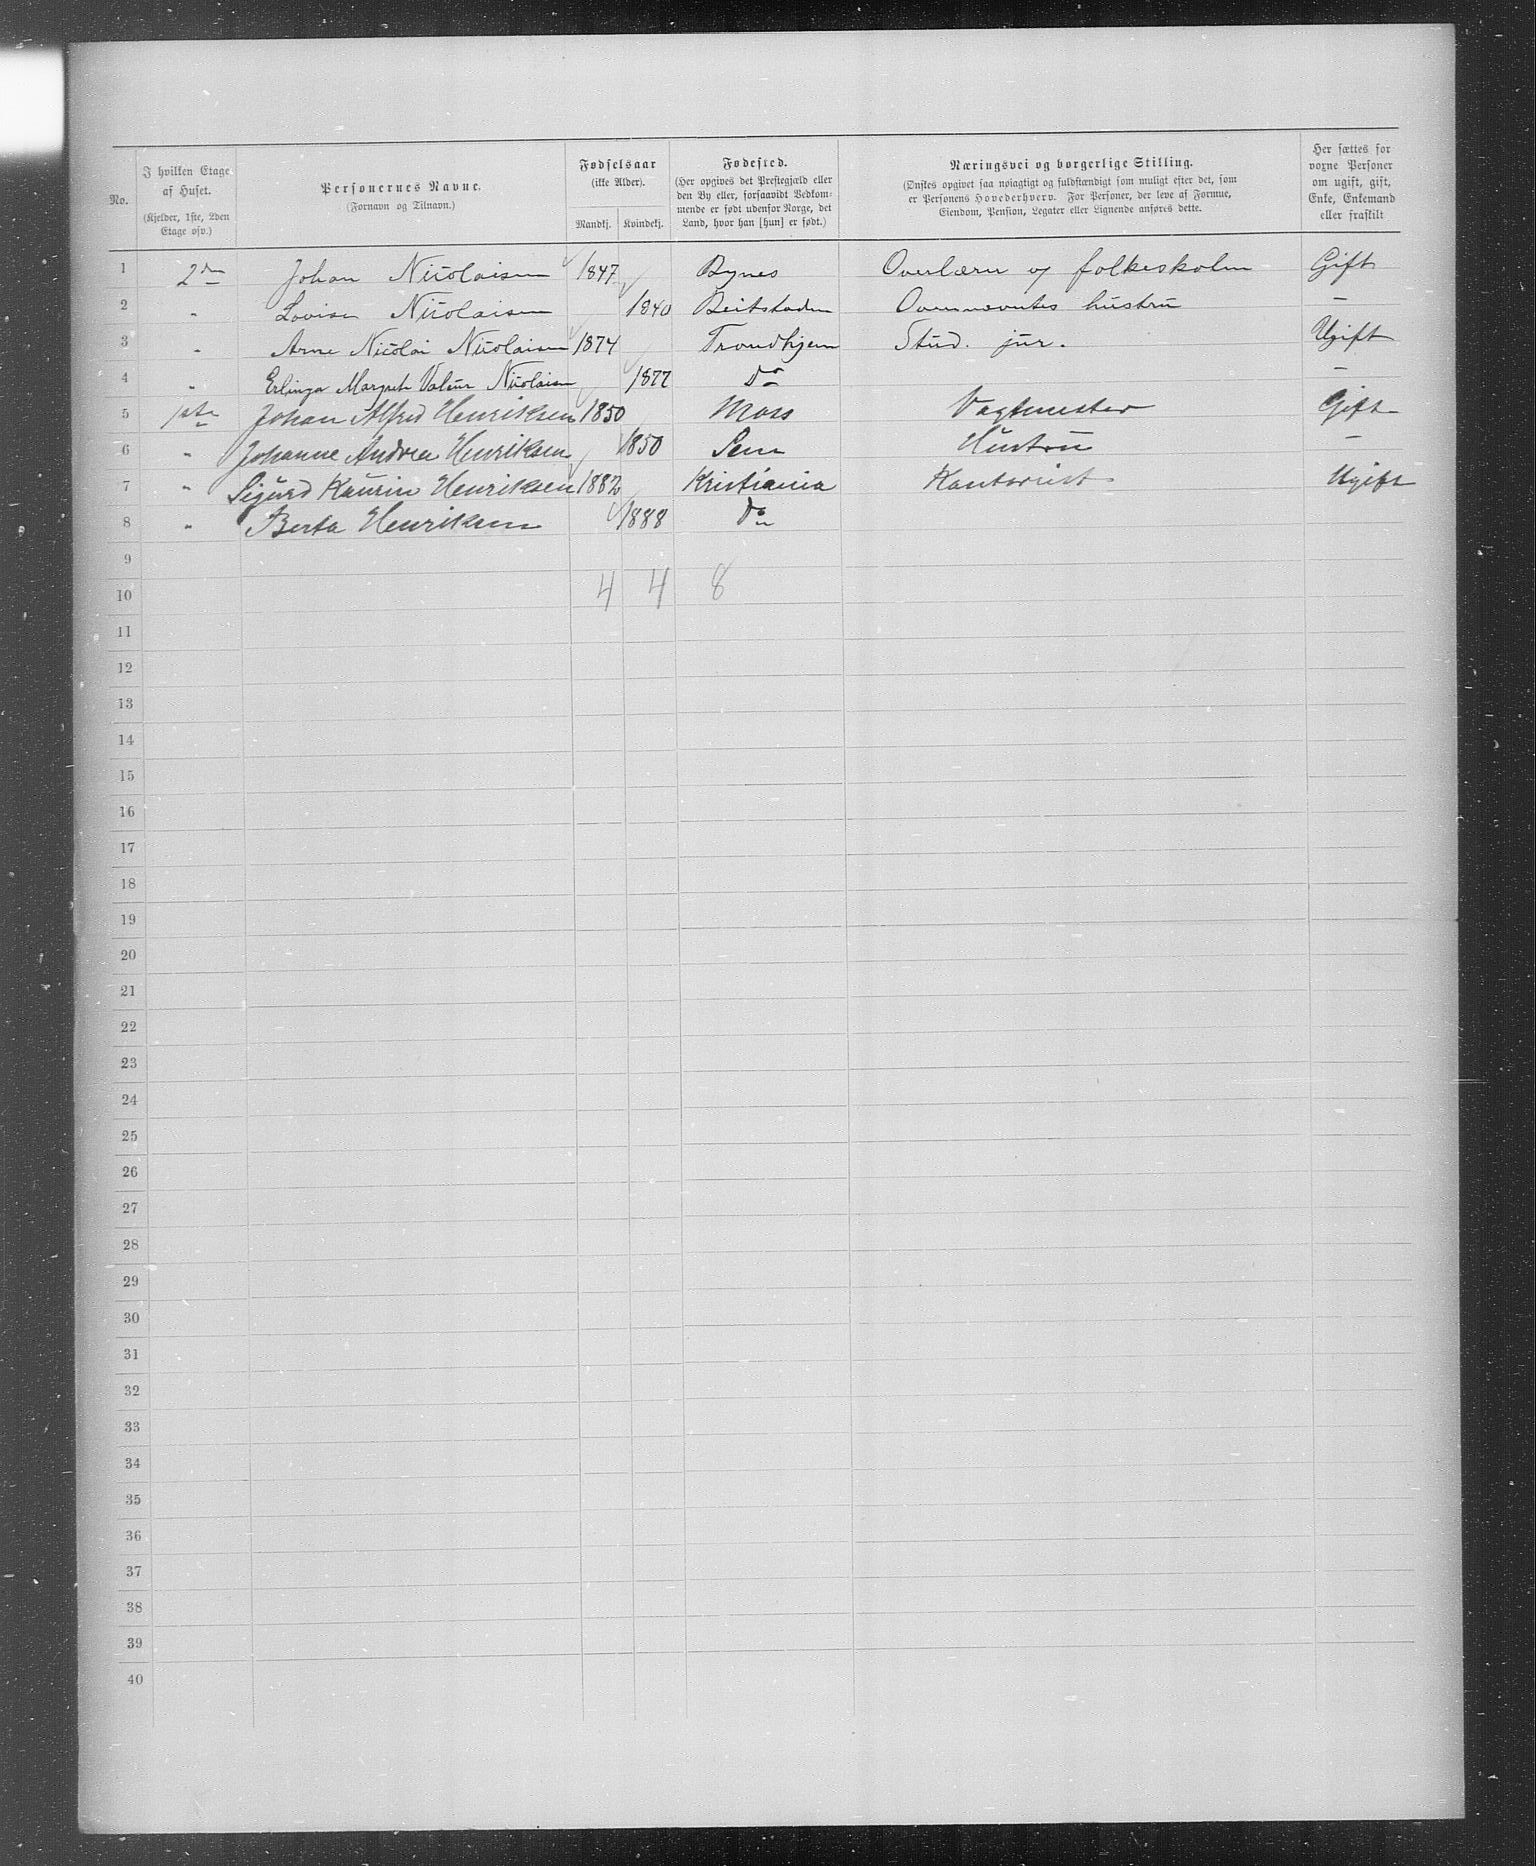 No.
I hvilken Etage af Huset.
(Kjelder, 1ste, 2den Etage osv.)
Personernes Navne.
(Fornavn og Tilnavn.)
Fødselsaar
(ikke Alder).
Mandkj. Kvindekj.
Fødested.
(Her opgives det Prestegjæld eller
den By eller, forsaavidt Vedkom-
mende er født udenfor Norge, det
Land, hvor han [hun] er født.)
Næringsvei og borgerlige Stilling.
(Ønskes opgivet saa nøiagtigt og fuldstændigt som muligt efter det, som
er Personens Hovederhverv. For Personer, der leve af Formue,
Eiendom, Pension, Legater eller Lignende anføres dette.
Her sættes for
voxne Personer
om ugift, gift,
Enke, Enkemand
eller fraskilt
1 2den Johan Nicolaisen 1847 Bynes Overlærer og folkeskolen Gift
2 " Lovise Nicolaisen 1840 Beitstaden Ovennævntes hustru —
3 " Arne Nicolai Nicolaisen 1874 Trondhjem Stud. jur. Ugift
4 " Erlinga Margreth Nicolaisen 1877 Do —
5 1ste Johan Alfred Henriksen 1850 Moss Vagtmester Gift
6 " Johanne Andrea Henriksen 1850 Sem Hustru —
7 " Sigurd Kaurin Henriksen 1882 Kristiania Kontorist Ugift
8 " Berta Henriksen 1888 Do
9
10 4 4 8
11
12
13
14
15
16
17
18
19
20
21
22
23
24
25
26
27
28
29
30
31
32
33
34
35
36
37
38
39
40